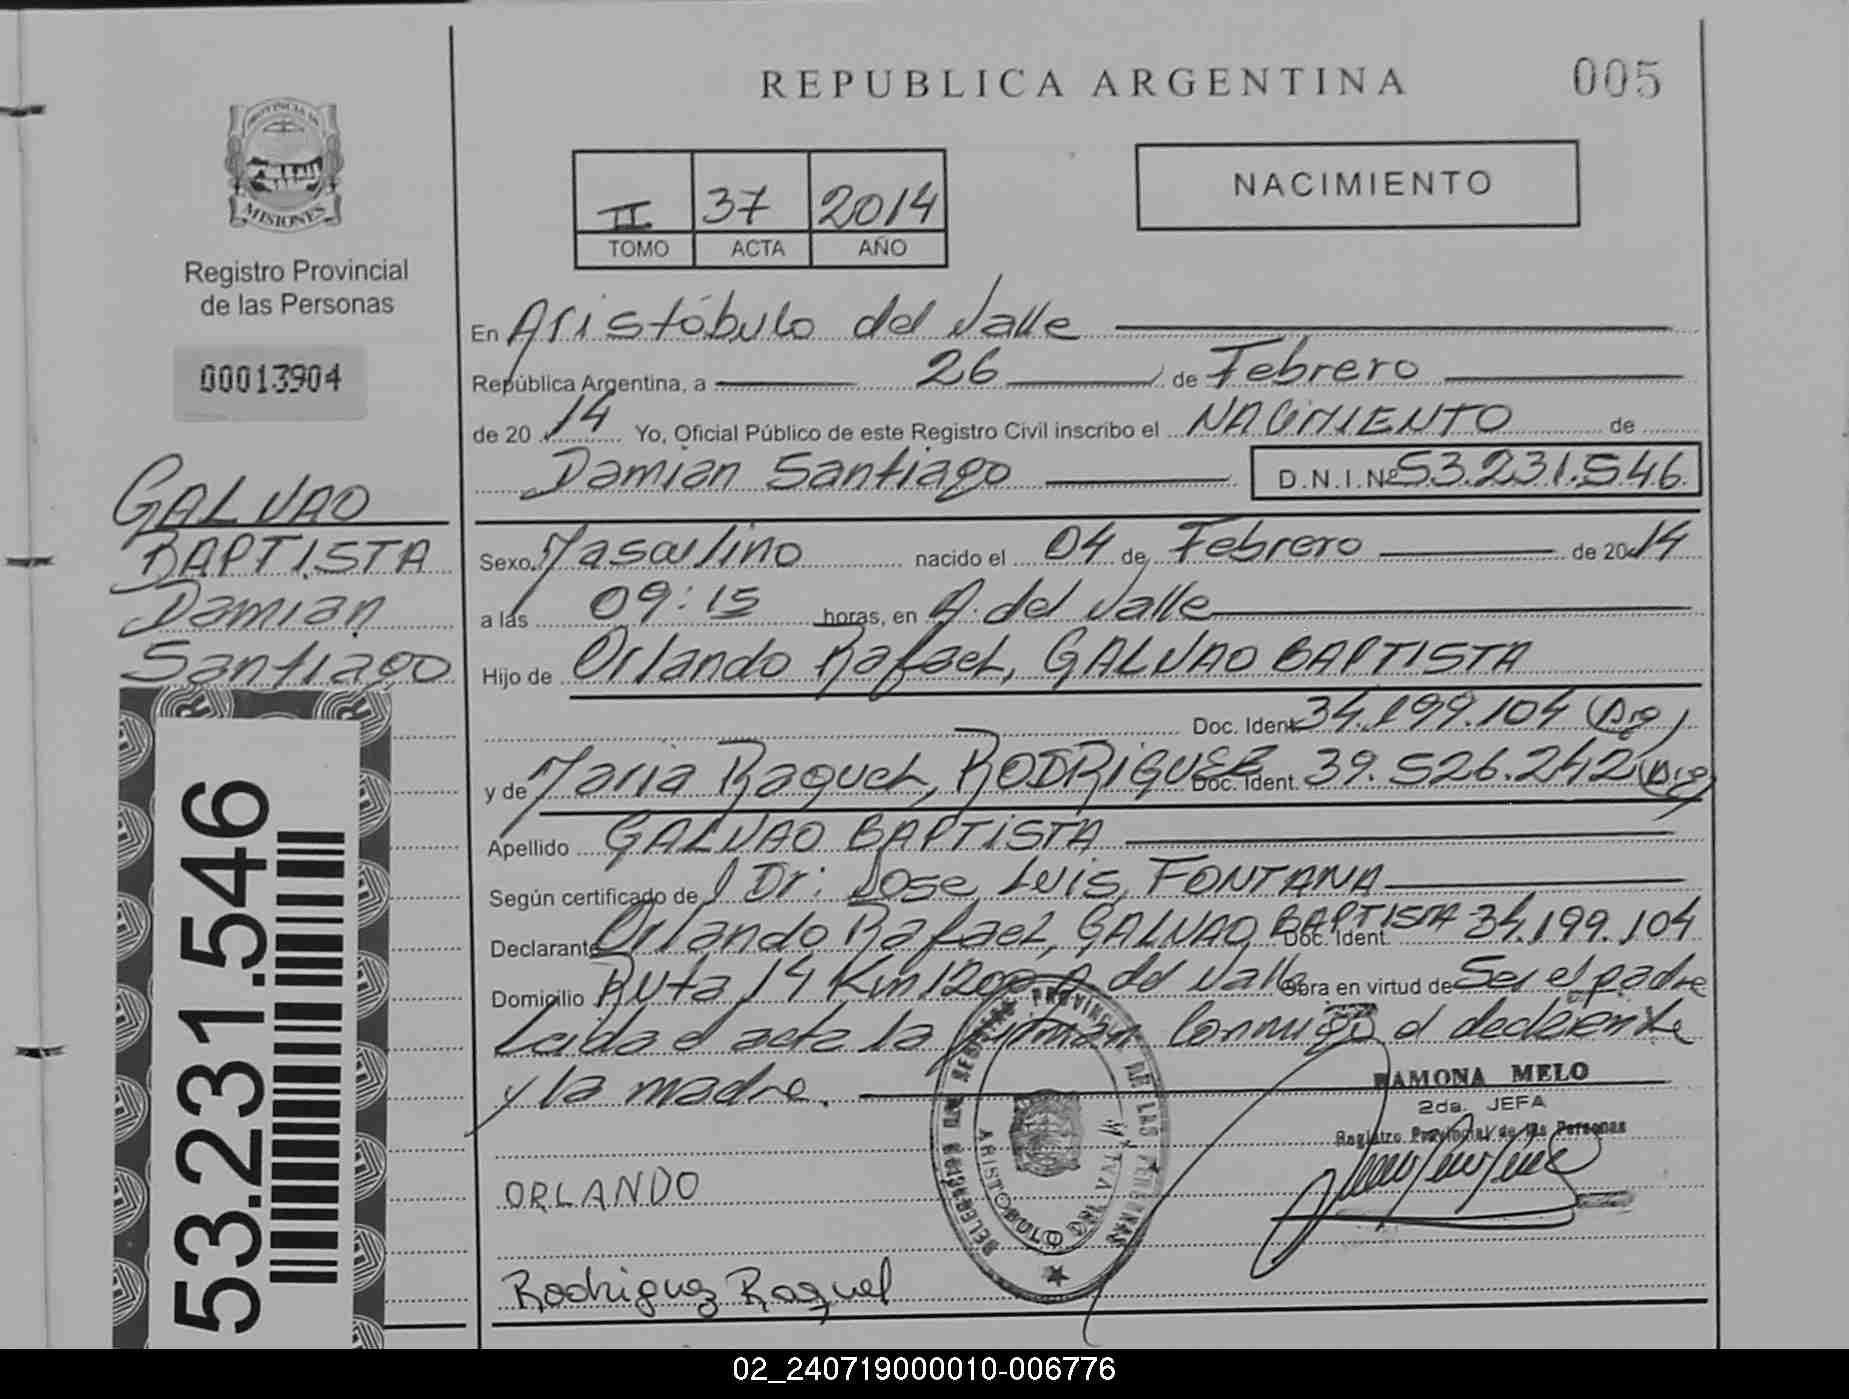 REPUBLICA ARGENTINA
005
PROVINCIA DE
MISIONES
Registro Provincial
de las Personas
00013904
II 37 2014
TOMO ACTA AÑO
NACIMIENTO
En Aristóbulo del Valle
República Argentina, a 26 de Febrero
de 20 14 Yo, Oficial Público de este Registro Civil inscribo el NACIMIENTO de
Damian Santiago D.N.I.Nº 53.231.546
GALVAO
BAPTISTA
Damian
Santiago
Sexo Masculino nacido el 04 de Febrero de 20 14
a las 09:15 horas, en A. del Valle
Hijo de Orlando Rafael, GALVAO BAPTISTA
Doc. Ident. 34.199.104 (Arg)
y de Maria Raquel, RODRIGUEZ Doc. Ident. 39.526.242 (Arg)
Apellido GALVAO BAPTISTA
Según certificado de Dr: Jose Luis, FONTANA
Declarante Orlando Rafael, GALVAO BAPTISTA Doc. Ident. 34.199.104
Domicilio Ruta 14 Km 1200 A del Valle Obra en virtud de Ser el padre
Leida el acta la firman Conmigo el declarante
y la madre.
53.231.546
RAMONA MELO
2da. JEFA
Registro Provincial de las Personas
PROVINCIAL DE LAS PERSONAS
ARISTOBULO DEL VALLE
ORLANDO
Rodriguez Raquel
02_240719000010-006776